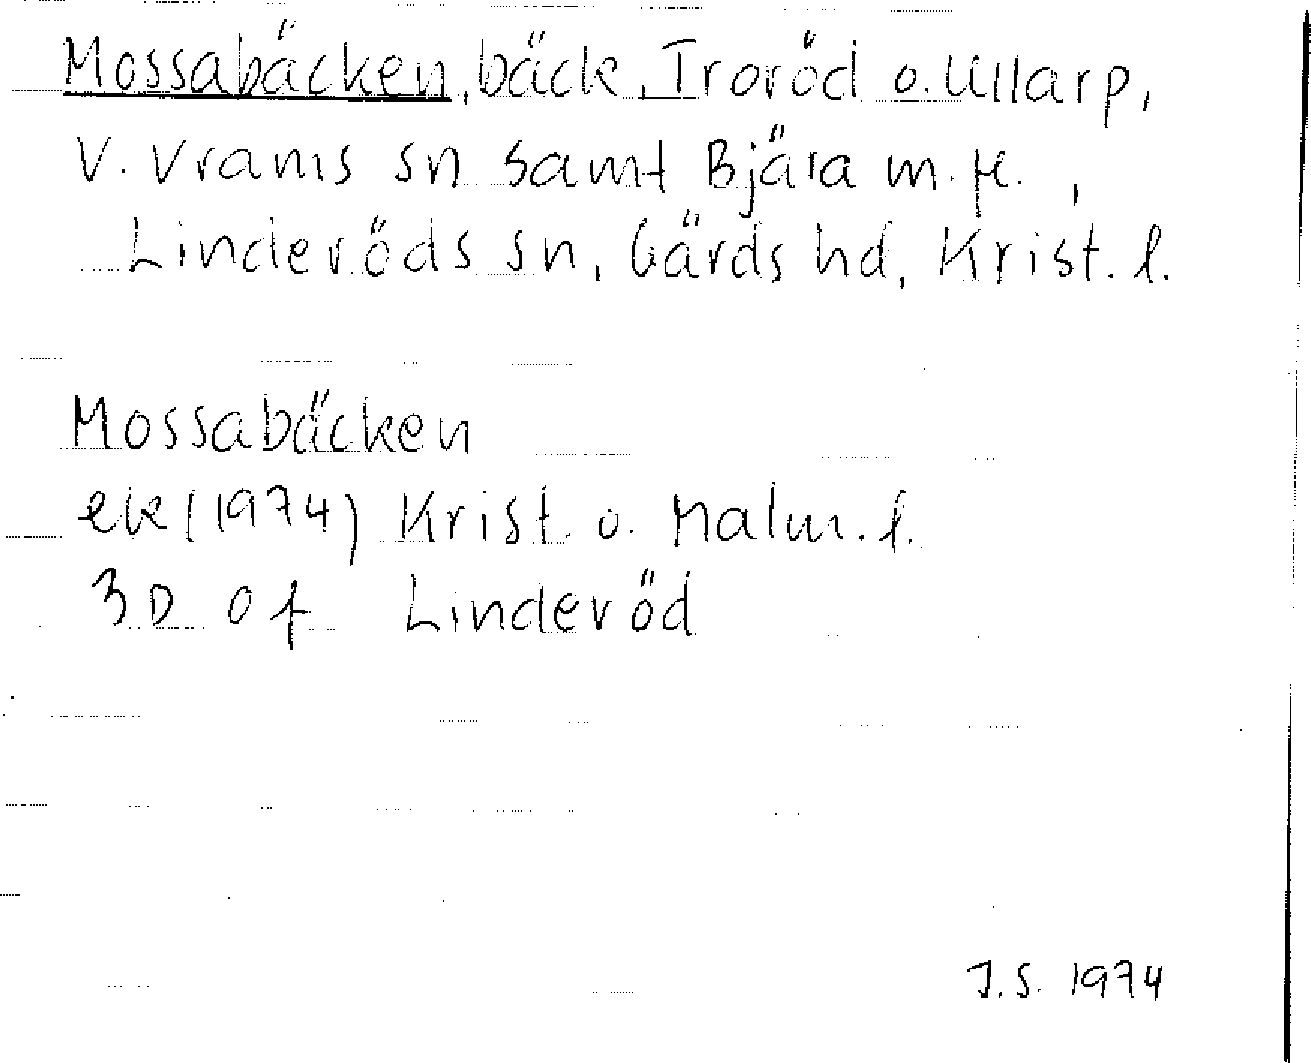 Mossabäcken, bäck, Troröd o. Ullarp,
V. Vrams sn samt Bjära m. fl. ,
Linderöds sn, Gärds hd, Krist. l.
Mossabäcken
ek (1974) Krist o. Malm. l.
3D 0f Linderöd
J.S. 1974